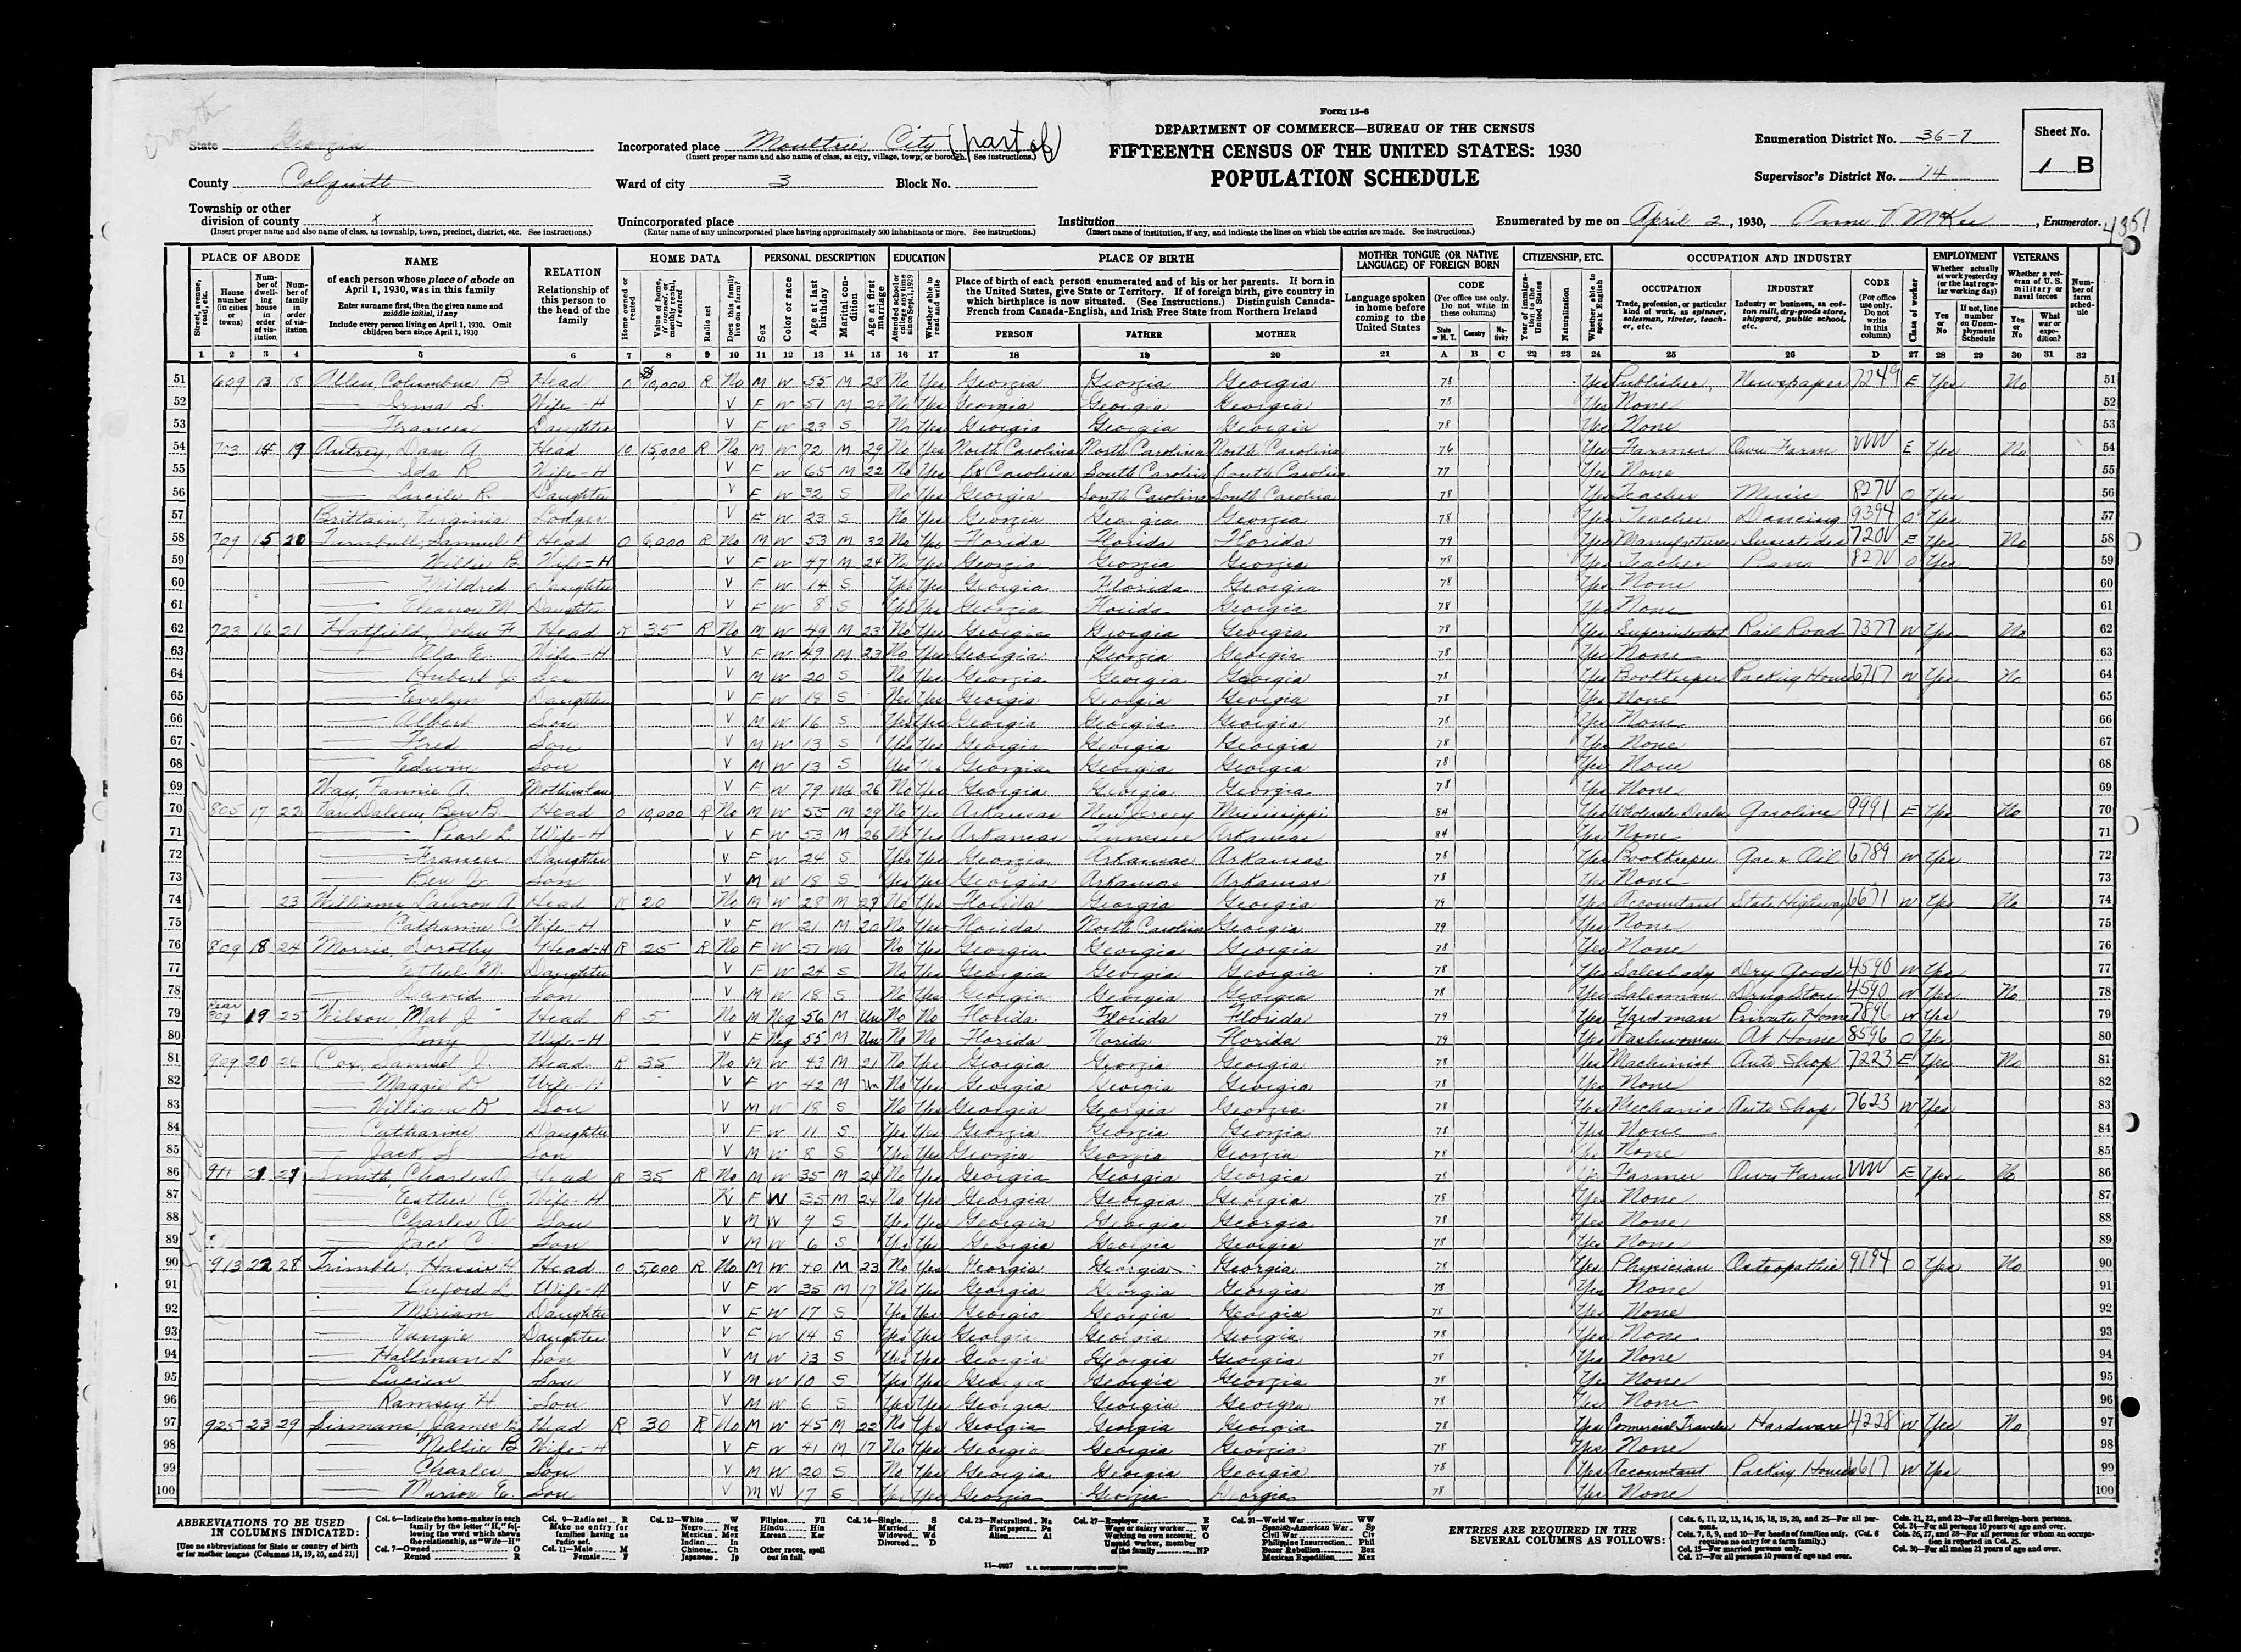 Form 15-6
DEPARTMENT OF COMMERCE—BUREAU OF THE CENSUS
FIFTEENTH CENSUS OF THE UNITED STATES: 1930
POPULATION SCHEDULE
State Georgia
Incorporated place Moultrie City (part of)
(Insert proper name and also name of class, as city, village, town, or borough. See instructions.)
Enumeration District No. 36-7
Sheet No. 1 B
County Colquitt
Ward of city 3 Block No.
Supervisor's District No. 14
Township or other division of county x
(Insert proper name and also name of class, as township, town, precinct, district, etc. See instructions.)
Unincorporated place
(Enter name of any unincorporated place having approximately 500 inhabitants or more. See instructions.)
Institution
(Insert name of institution, if any, and indicate the lines on which the entries are made. See instructions.)
Enumerated by me on April 2, 1930, McKee, Enumerator.
4351
PLACE OF ABODE NAME RELATION HOME DATA PERSONAL DESCRIPTION EDUCATION PLACE OF BIRTH MOTHER TONGUE (OR NATIVE LANGUAGE) OF FOREIGN BORN CITIZENSHIP, ETC. OCCUPATION AND INDUSTRY EMPLOYMENT VETERANS
PERSON FATHER MOTHER
1 2 3 4 5 6 7 8 9 10 11 12 13 14 15 16 17 18 19 20 21 A B C 22 23 24 25 26 D 27 28 29 30 31 32
51 609 13 18 Allen, Columbus B Head O 10,000 R No M W 55 M 28 No Yes Georgia Georgia Georgia 78 Yes Publisher Newspaper 7249 E Yes No 51
52 Irma S. Wife-H V F W 51 M 24 No Yes Georgia Georgia Georgia 78 Yes None 52
53 Frances Daughter V F W 23 S No Yes Georgia Georgia Georgia 78 Yes None 53
54 703 14 19 Autrey, Dan A Head O 15,000 R No M W 72 M 29 No Yes North Carolina North Carolina North Carolina 76 Yes Farmer Own Farm VVVV E Yes No 54
55 Ida R Wife-H V F W 65 M 22 No Yes So Carolina South Carolina South Carolina 77 Yes None 55
56 Lucile R. Daughter V F W 32 S No Yes Georgia South Carolina South Carolina 78 Yes Teacher Music 827V O Yes 56
57 Brittain, Virginia Lodger V F W 23 S No Yes Georgia Georgia Georgia 78 Yes Teacher Dancing 9394 O Yes 57
58 709 15 20 Turnbull, Samuel P Head O 6,000 R No M W 53 M 32 No Yes Florida Florida Florida 79 Yes Manufacturer 720V E Yes No 58
59 Willie B Wife-H V F W 47 M 24 No Yes Georgia Georgia Georgia 78 Yes Teacher 827V O Yes 59
60 Mildred Daughter V F W 14 S Yes Yes Georgia Florida Georgia 78 Yes None 60
61 Eleanor M Daughter V F W 8 S Yes Yes Georgia Florida Georgia 78 Yes None 61
62 723 16 21 Hatfield, John F Head R 35 R No M W 49 M 23 No Yes Georgia Georgia Georgia 78 Yes Superintendent Rail Road 7377 W Yes No 62
63 Ala E. Wife-H V F W 49 M 23 No Yes Georgia Georgia Georgia 78 Yes None 63
64 Hubert J. Son V M W 20 S No Yes Georgia Georgia Georgia 78 Yes Bookkeeper Packing House 6717 W Yes No 64
65 Evelyn Daughter V F W 18 S Yes Yes Georgia Georgia Georgia 78 Yes None 65
66 Albert Son V M W 16 S Yes Yes Georgia Georgia Georgia 78 Yes None 66
67 Fred Son V M W 13 S Yes Yes Georgia Georgia Georgia 78 Yes None 67
68 Edwin Son V M W 13 S Yes Yes Georgia Georgia Georgia 78 Yes None 68
69 Way, Fannie A. Mother in law V F W 79 Wd 26 No Yes Georgia Georgia Georgia 78 Yes None 69
70 805 17 22 VanDalsem, Ben B. Head O 10,000 R No M W 55 M 29 No Yes Arkansas New Jersey Mississippi 84 Yes Wholesale Dealer Gasoline 9991 E Yes No 70
71 Pearl L Wife-H V F W 53 M 26 No Yes Arkansas Tennessee Arkansas 84 Yes None 71
72 Frances Daughter V F W 24 S Yes Yes Georgia Arkansas Arkansas 78 Yes Bookkeeper Gas & Oil 6789 W Yes 72
73 Ben Jr. Son V M W 18 S Yes Yes Georgia Arkansas Arkansas 78 Yes None 73
74 23 Williams Lauron A Head R 20 No M W 28 M 27 No Yes Florida Georgia Georgia 79 Yes Accountant State Highway 6671 W Yes No 74
75 Catharine C Wife-H V F W 21 M 20 No Yes Florida North Carolina Georgia 79 Yes None 75
76 809 18 24 Morris, Dorothy Head-H R 25 R No F W 51 Wd No Yes Georgia Georgia Georgia 78 Yes None 76
77 Ethel M. Daughter V F W 24 S No Yes Georgia Georgia Georgia 78 Yes Saleslady Dry Goods 4590 W Yes 77
78 David Son V M W 18 S No Yes Georgia Georgia Georgia 78 Yes Salesman Drug Store 4590 W Yes No 78
79 Rear 809 19 25 Wilson, Mat J Head R 5 No M Neg 56 M Un No No Florida Florida Florida 79 Yes Yardman Private Home 7896 W Yes 79
80 Wife-H V F Neg 55 M Un No No Florida Florida Florida 79 Yes Washwoman At Home 8596 O Yes 80
81 909 20 26 Cox, Samuel J. Head R 35 No M W 43 M 21 No Yes Georgia Georgia Georgia 78 Yes Machinist Auto Shop 7223 E Yes No 81
82 Maggie D Wife-H V F W 42 M Un No Yes Georgia Georgia Georgia 78 Yes None 82
83 William D Son V M W 18 S No Yes Georgia Georgia Georgia 78 Yes Mechanic Auto Shop 7623 W Yes 83
84 Catharine Daughter V F W 11 S Yes Yes Georgia Georgia Georgia 78 Yes None 84
85 Jack S Son V M W 8 S Yes Yes Georgia Georgia Georgia 78 Yes None 85
86 911 21 27 Smith, Charles O. Head R 35 R No M W 35 M 24 No Yes Georgia Georgia Georgia 78 Yes Farmer Own Farm VVVV E Yes No 86
87 Esther C. Wife-H V F W 35 M 24 No Yes Georgia Georgia Georgia 78 Yes None 87
88 Charles O. Son V M W 9 S Yes Yes Georgia Georgia Georgia 78 Yes None 88
89 Jack C. Son V M W 6 S Yes Yes Georgia Georgia Georgia 78 Yes None 89
90 913 22 28 Trimble, Harris H. Head O 5,000 R No M W 40 M 23 No Yes Georgia Georgia Georgia 78 Yes Physician Osteopathic 9194 O Yes No 90
91 Buford L Wife-H V F W 35 M 17 No Yes Georgia Georgia Georgia 78 Yes None 91
92 Miriam Daughter V F W 17 S Yes Yes Georgia Georgia Georgia 78 Yes None 92
93 Vangie Daughter V F W 14 S Yes Yes Georgia Georgia Georgia 78 Yes None 93
94 Hallman L Son V M W 13 S Yes Yes Georgia Georgia Georgia 78 Yes None 94
95 Lucien Son V M W 10 S Yes Yes Georgia Georgia Georgia 78 Yes None 95
96 Ramsey H Son V M W 6 S Yes Yes Georgia Georgia Georgia 78 Yes None 96
97 925 23 29 Sirmans, James B. Head R 30 R No M W 45 M 22 No Yes Georgia Georgia Georgia 78 Yes Commercial Traveler Hardware 4228 W Yes No 97
98 Nellie B Wife-H V F W 41 M 17 No Yes Georgia Georgia Georgia 78 Yes None 98
99 Charles Son V M W 20 S No Yes Georgia Georgia Georgia 78 Yes Accountant Packing House 6617 W Yes 99
100 Marion E. Son V M W 17 S Yes Yes Georgia Georgia Georgia 78 Yes None 100
ABBREVIATIONS TO BE USED IN COLUMNS INDICATED:
[Use no abbreviations for State or country of birth or for mother tongue (Columns 18, 19, 20, and 21)]
ENTRIES ARE REQUIRED IN THE SEVERAL COLUMNS AS FOLLOWS: